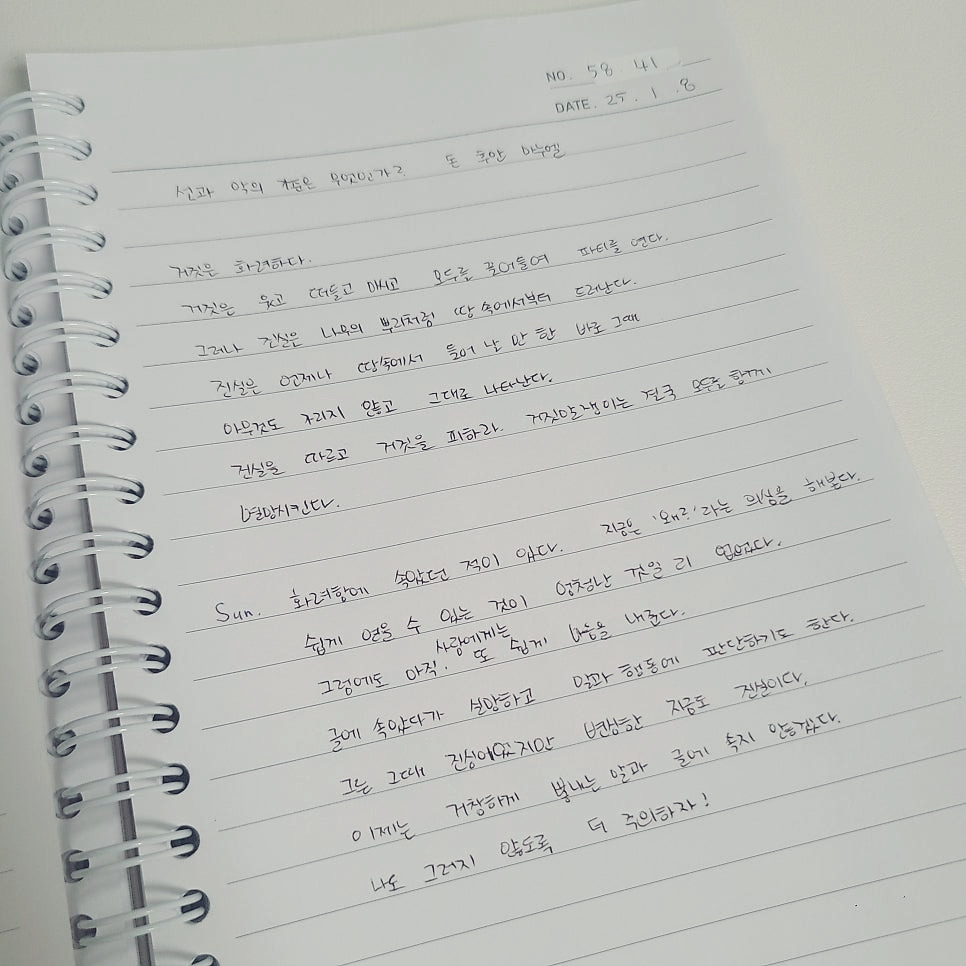 NO. 58 . 41
DATE. 25 . 1 . 8
선과 악의 기준은 무엇인가? 돈 후안 마누엘
거짓은 화려하다.
거짓은 웃고 떠들고 마시고 모두를 끌어들여 파티를 연다.
그러나 진실은 나무의 뿌리처럼 땅 속에서부터 드러난다.
진실은 언제나 땅속에서 들어 날 만 한 바로 그때
아무것도 가리지 않고 그대로 나타난다.
진실을 따르고 거짓을 피하라. 거짓말쟁이는 결국 모두를 함께
멸망시킨다.
Sun. 화려함에 속았던 적이 있다. 지금은 '왜?'라는 의심을 해본다.
쉽게 얻을 수 있는 것이 엄청난 것일 리 없었다.
그럼에도 아직. 사람에게는 또 쉽게 마음을 내준다.
글에 속았다가 실망하고 말과 행동에 판단하기도 한다.
그는 그때 진심이었지만 변심한 지금도 진심이다.
이제는 거창하게 뽐내는 말과 글에 속지 않겠다.
나도 그러지 않도록 더 주의하자!